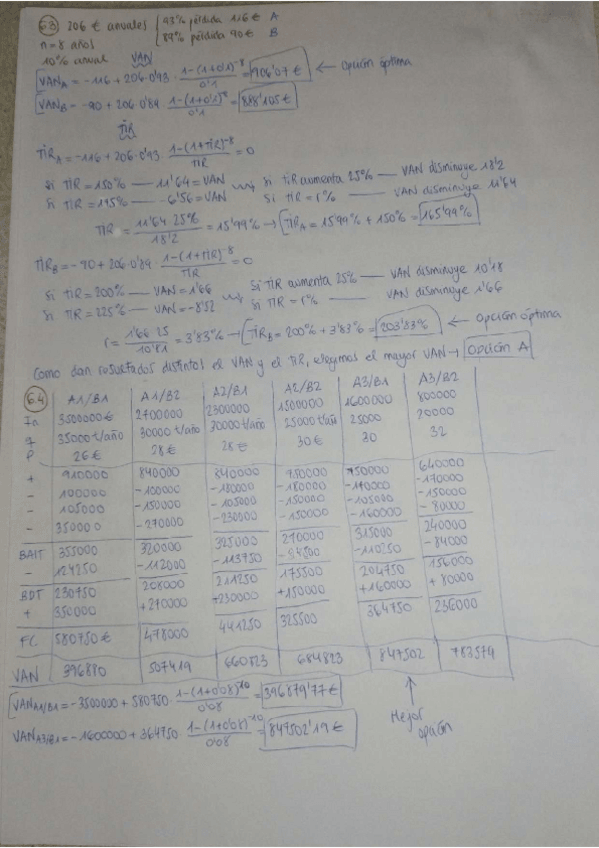 6.3 206 € anuales { 93% pérdida 116 € A
n = 8 años { 84% pérdida 90 € B
10% anual VAN
VAN_A = -116 + 206·0'93 · (1-(1+0'1)^-8)/0'1 = 906'07 € ← opción óptima
VAN_B = -90 + 206·0'84 · (1-(1+0'1)^-8)/0'1 = 
TIR
TIR_A = -116 + 206·0'93 (1-(1+TIR)^-8)/TIR = 0
Si TIR = 150% — 11'64 = VAN → Si TIR aumenta 25% — VAN disminuye 18'2
Si TIR = 175% — -6'56 = VAN Si TIR = r% — VAN disminuye 11'64
TIR = (11'64 · 25%)/18'2 = 15'99% → TIR_A = 15'99% + 150% = 165'99%
TIR_B = -90 + 206·0'84 · (1-(1+TIR)^-8)/TIR = 0
Si TIR = 200% — VAN = 1'66 → Si TIR aumenta 25% — VAN disminuye 10'18
Si TIR = 225% — VAN = -8'52 Si TIR = r% — VAN disminuye 1'66
r = (1'66 · 25)/10'81 = 3'83% → TIR_B = 200% + 3'83% = 203'83% ← opción óptima
Como dan resultados distintos el VAN y el TIR, elegimos el mayor VAN → Opción A
6.4 A1/B1 A1/B2 A2/B1 A2/B2 A3/B1 A3/B2
In 3500000 € 2700000 2300000 1500000 1600000 800000
q 35000 t/año 30000 t/año 30000 t/año 25000 t/año 25000 20000
P 26 € 28 € 28 € 30 € 30 32
+ 910000 840000 840000 750000 640000
- 100000 -100000 -180000 -180000 -170000 -170000
- 105000 -150000 -105000 -150000 -105000 -150000
- 350000 -270000 -230000 -150000 -160000 -80000
BAIT 355000 320000 325000 270000 315000 240000
- 124250 -112000 -113750 -94500 -110250 -84000
BDT 230750 208000 211250 175500 204750 156000
+ 350000 +270000 +230000 +150000 +160000 +80000
FC 580750 € 478000 441250 325500 364750 236000
VAN 396880 507419 660823 684823 847502 783574
VAN_A1/B1 = -3500000 + 580750 · (1-(1+0'08)^-10)/0'08 = 396879'77 €
VAN_A3/B1 = -1600000 + 364750 · (1-(1+0'08)^-10)/0'08 = 847502'19 €
Mejor
opción